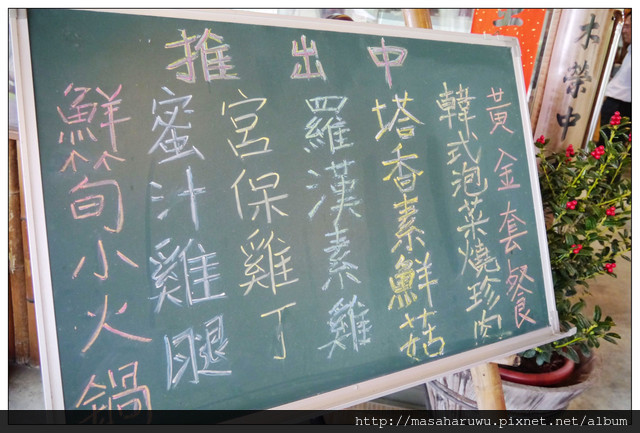 推出中
黃金套餐
韓式泡菜燒珍肉
塔香素鮮菇
羅漢素雞
宮保雞丁
蜜汁雞腿
鮮筍小火鍋
木榮中
http://masaharuwu.pixnet.net/album